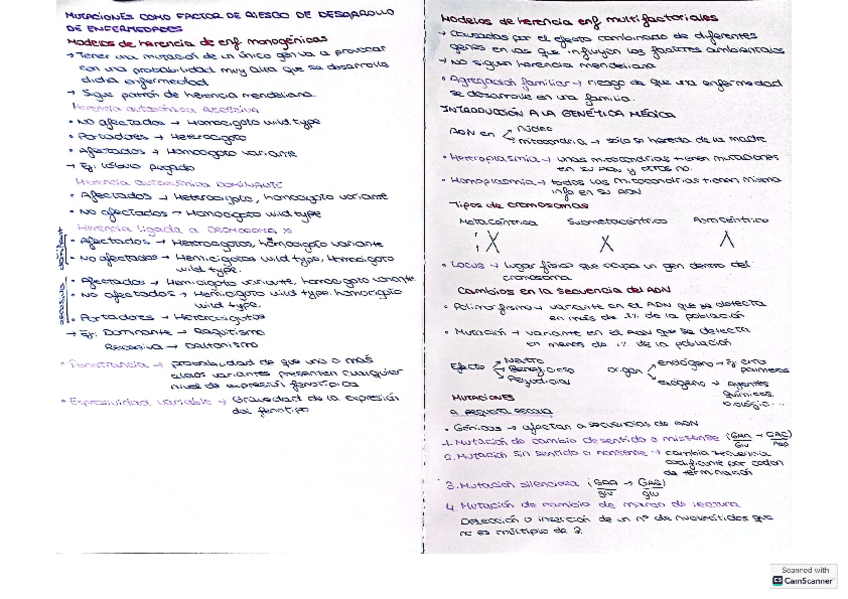 MUTACIONES COMO FACTOR DE RIESGO DE DESARROLLO
DE ENFERMEDADES
Modelos de herencia de enf. monogénicas
→ Tener una mutación de un único gen va a provocar
con una probabilidad muy alta que se desarrolle
dicha enfermedad
→ Sigue patrón de herencia mendeliana.
Herencia autosómica RECESIVA
• No afectados → Homocigoto wild type
• Portadores → Heterocigoto
• Afectados → Homocigoto variante
→ Ej:
Herencia autosómica DOMINANTE
• Afectados → Heterocigoto, homocigoto variante
• No afectados → Homocigoto wild type
Herencia ligada a CROMOSOMA X
• Afectados → Heterocigotos, homocigoto variante
• No afectados → Hemicigotos wild type, Homocigoto
wild type.
• Afectados → Hemicigoto variante, homocigoto variante
• No afectados → Hemicigoto wild type, homocigoto
wild type.
• Portadores → Heterocigotos
→ Ej: Dominante → Raquitismo
Recesiva → Daltonismo
• Penetrancia → probabilidad de que uno o más
alelos variantes presenten cualquier
nivel de expresión fenotípica
• Expresividad variable → Gravedad de la expresión
del fenotipo
Modelos de herencia enf. multifactoriales
→ Causadas por el efecto combinado de diferentes
genes en los que influyen los factores ambientales
→ No siguen herencia mendeliana
• Agregación familiar → riesgo de que una enfermedad
se desarrolle en una familia.
INTRODUCCIÓN A LA GENÉTICA MÉDICA
ADN en
Núcleo
mitocondria → sólo se hereda de la madre
• Heteroplasmia → unas mitocondrias tienen mutaciones
en su ADN y otras no.
• Homoplasmia → todas las mitocondrias tienen misma
info en su ADN
Tipos de cromosomas
Metacéntrica Submetacéntrico Acrocéntrico
• Locus → lugar físico que ocupa un gen dentro del
cromosoma
Cambios en la secuencia del ADN
• Polimorfismo → variante en el ADN que se detecta
en más de 1% de la población
• Mutación → variante en el ADN que se detecta
en menos de 1% de la población
Efecto
Neutro
Beneficioso
Perjudicial
origen
endógeno → Ej. error
polimerasa
exógeno → agentes
químicos
biológic...
MUTACIONES
A PEQUEÑA ESCALA
• Génicas → afectan a secuencias de ADN
1. Mutación de cambio de sentido o missense (GAA → GAC)
Glu Asp
2. Mutación sin sentido o nonsense → cambia secuencia
codificante por codón
de terminación
3. Mutación silenciosa (GAA → GAG)
glu glu
4. Mutación de cambio de marco de lectura
Delección o inserción de un nº de nucleótidos que
no es múltiplo de 3.
Scanned with
CS CamScanner